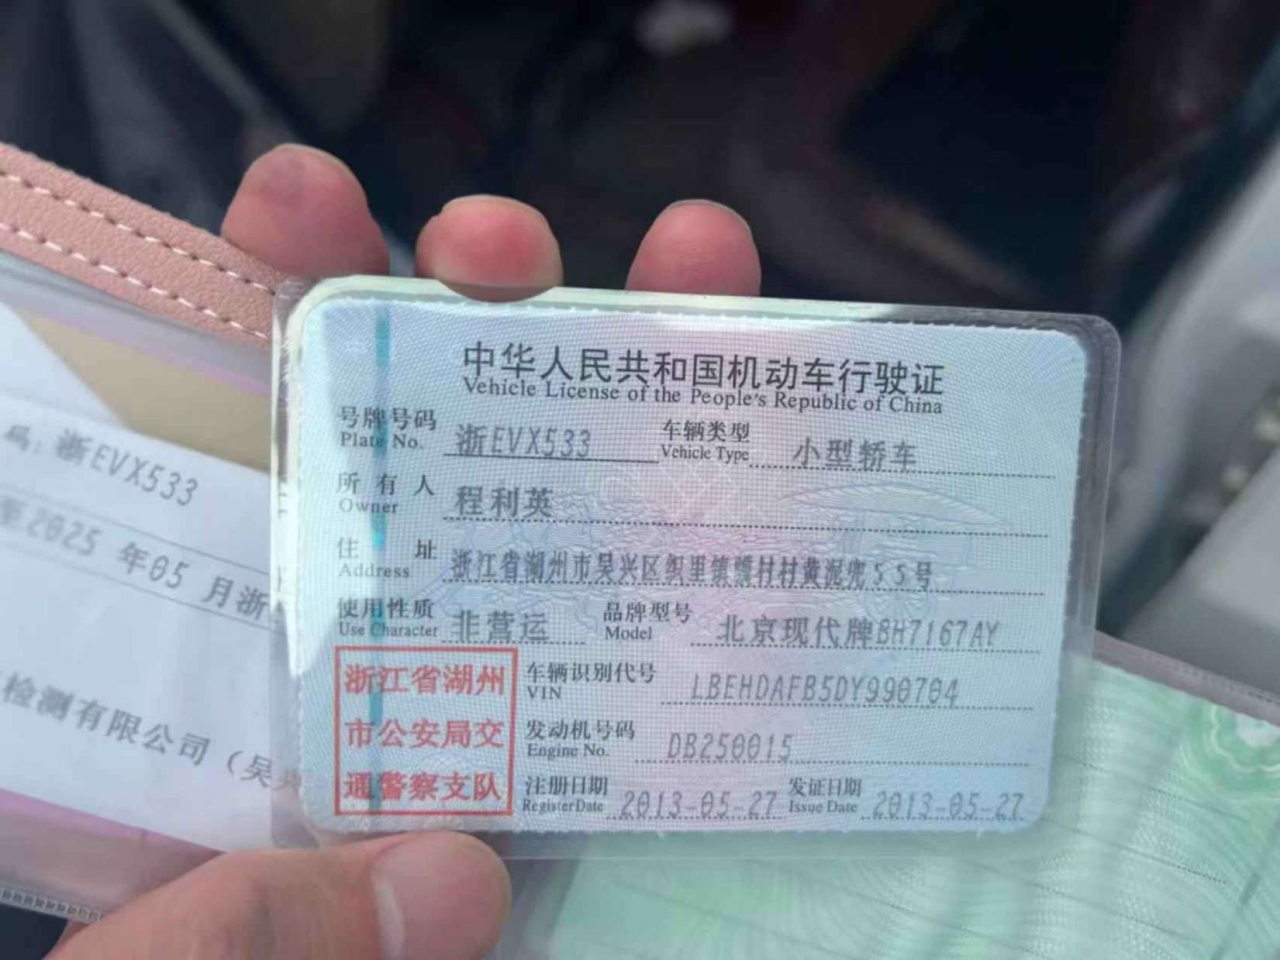 中华人民共和国机动车行驶证
Vehicle License of the People's Republic of China
号牌号码 浙EVX533 车辆类型 小型轿车
Plate No. Vehicle Type
所有人 程利英
Owner
住址 浙江省湖州市吴兴区织里镇骥村村黄泥兜55号
Address
使用性质 非营运 品牌型号 北京现代牌BH7167AY
Use Character Model
浙江省湖州
市公安局交
通警察支队
车辆识别代号 LBEHDAFB5DY990704
VIN
发动机号码 DB250015
Engine No.
注册日期 2013-05-27 发证日期 2013-05-27
Register Date Issue Date
码: 浙EVX533
至2025 年05 月浙
检测有限公司（吴